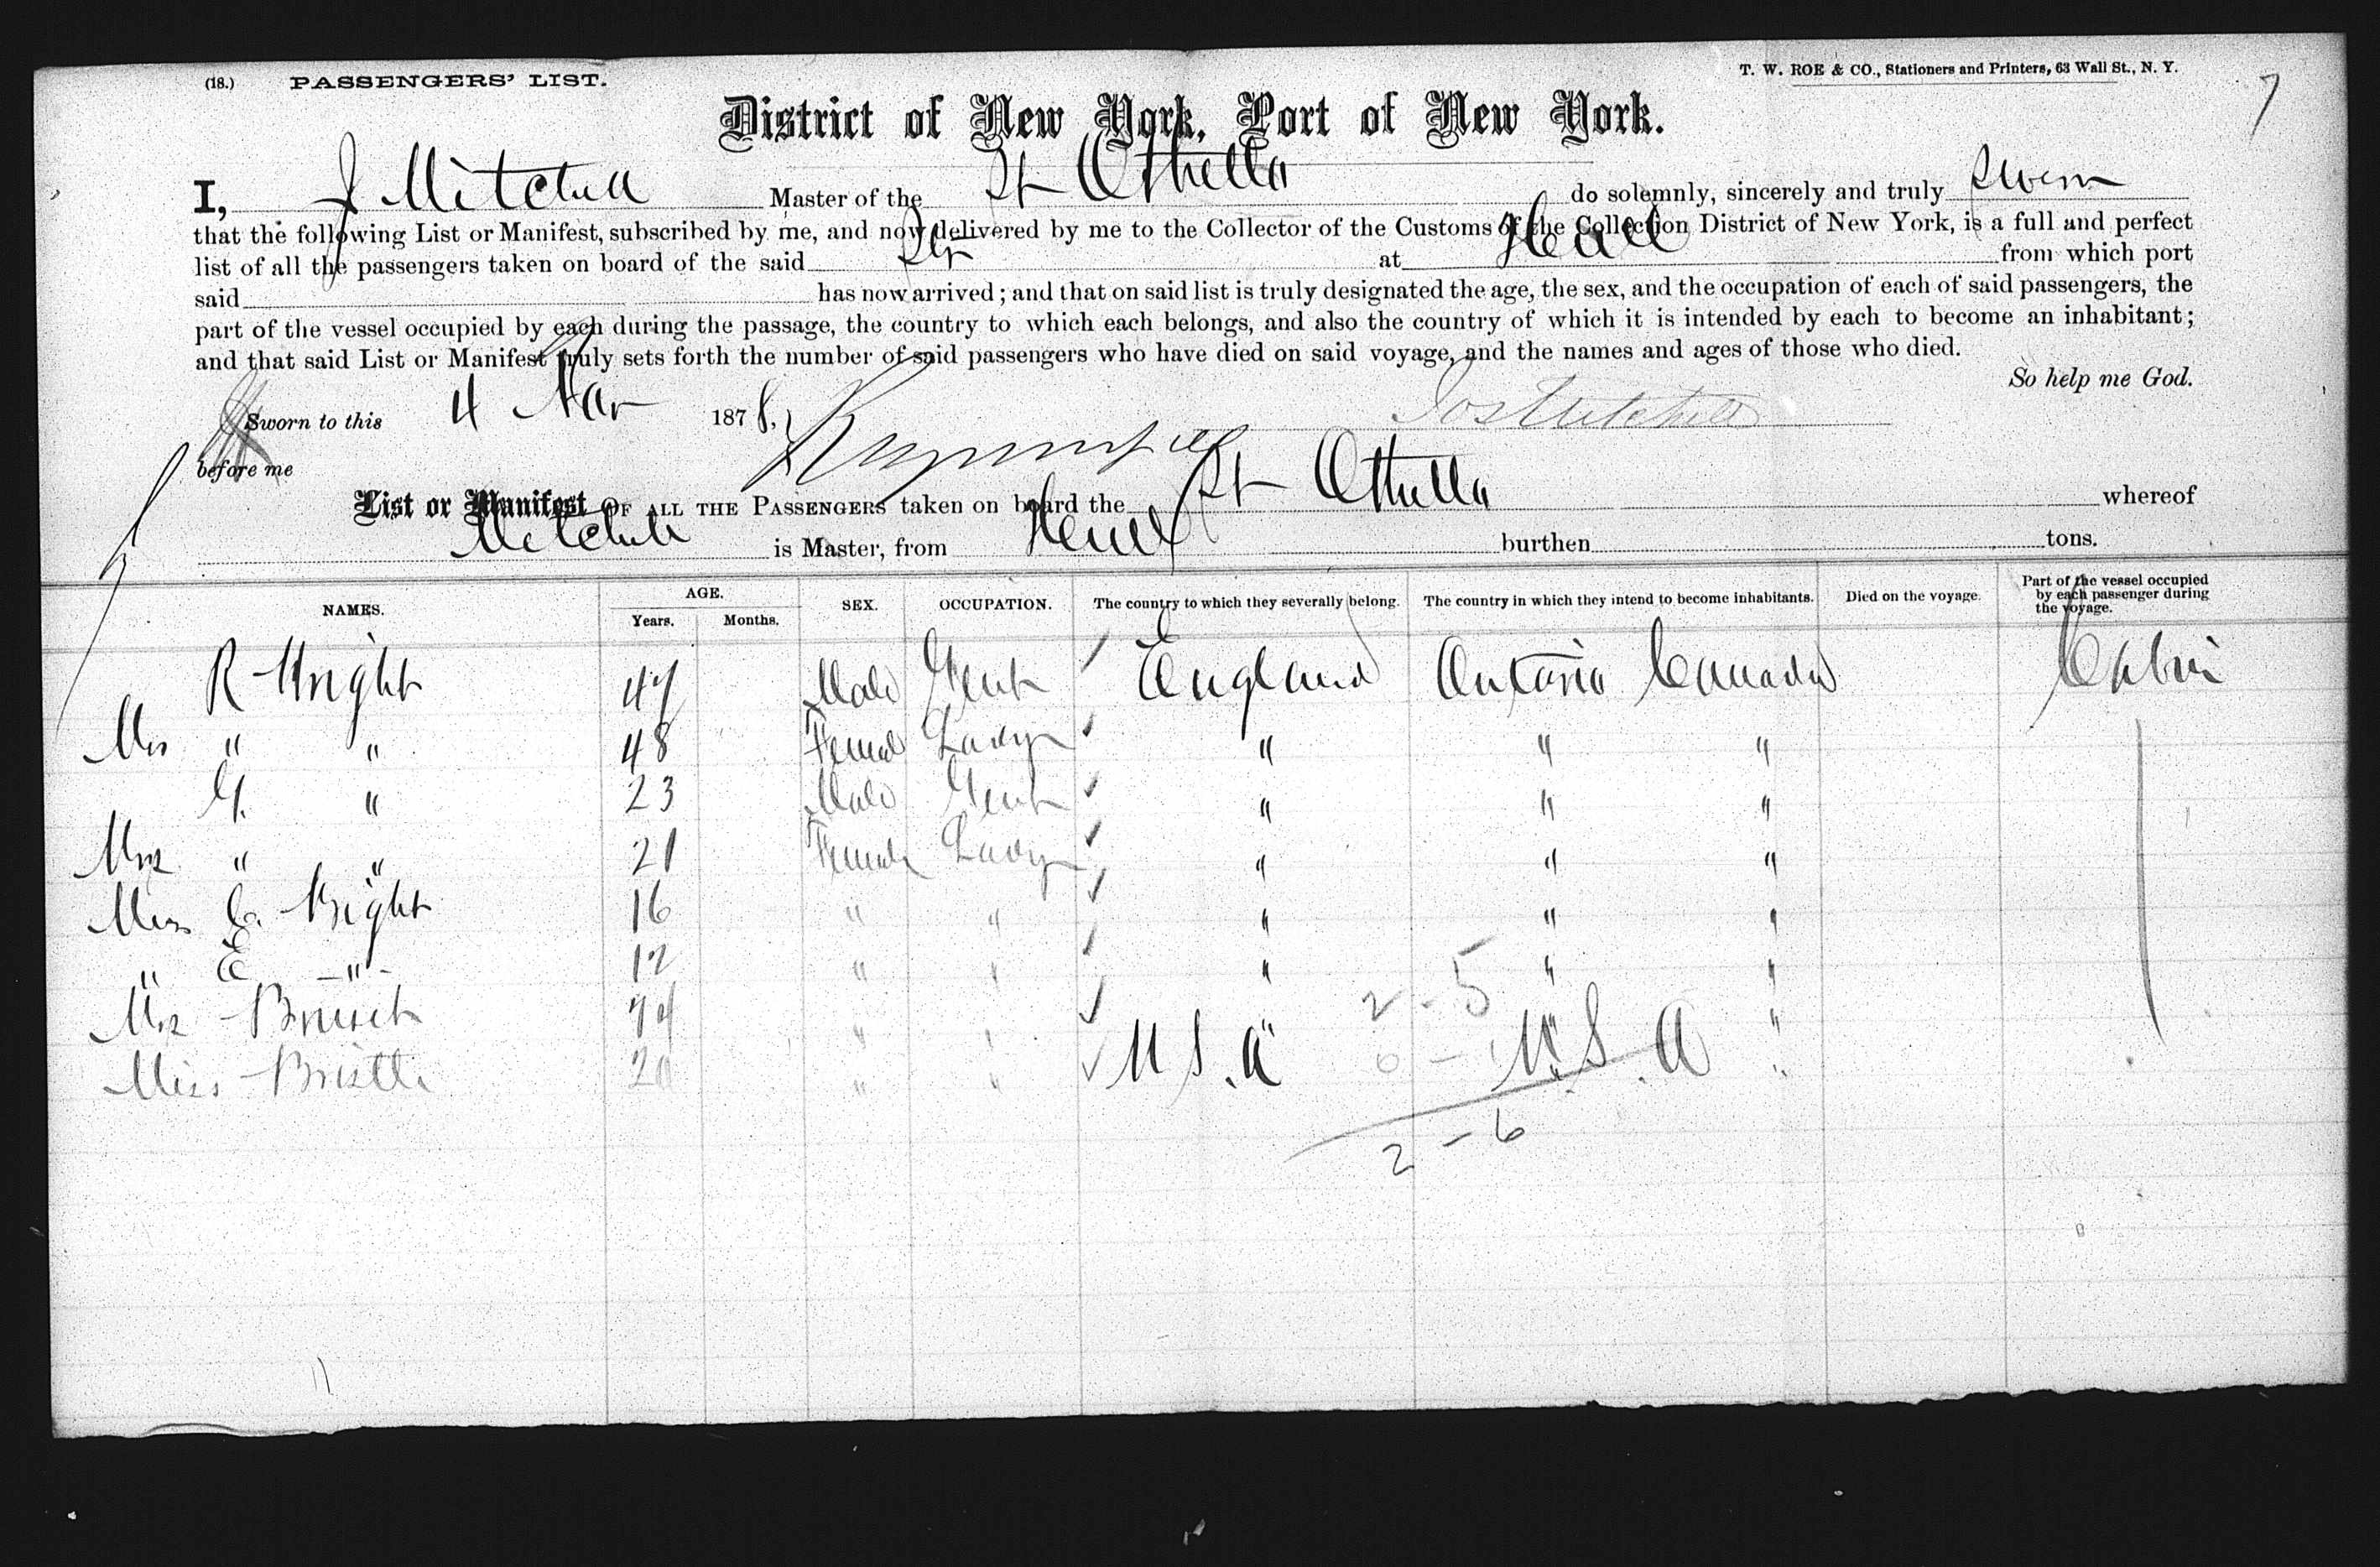 (18.) PASSENGERS' LIST.
T. W. ROE & CO., Stationers and Printers, 63 Wall St., N. Y.
7
District of New York, Port of New York.
I, J Mitchell Master of the Str Othello do solemnly, sincerely and truly swear
that the following List or Manifest, subscribed by me, and now delivered by me to the Collector of the Customs of the Collection District of New York, is a full and perfect
list of all the passengers taken on board of the said Str at Hull from which port
said has now arrived; and that on said list is truly designated the age, the sex, and the occupation of each of said passengers, the
part of the vessel occupied by each during the passage, the country to which each belongs, and also the country of which it is intended by each to become an inhabitant;
and that said List or Manifest truly sets forth the number of said passengers who have died on said voyage, and the names and ages of those who died.
So help me God.
Sworn to this 4 Mar 1878, Jos Mitchell
before me
List or Manifest OF ALL THE PASSENGERS taken on board the Str Othello whereof
Mitchell is Master, from Hull burthen tons.
NAMES. AGE. Years. Months. SEX. OCCUPATION. The country to which they severally belong. The country in which they intend to become inhabitants. Died on the voyage. Part of the vessel occupied by each passenger during the voyage.
R Wright 47 Male Gent England Ontario Canada Cabin
Mrs " " 48 Female Lady " " "
G. " 23 Male Gent " " "
Mrs " " 21 Female Lady " " "
Miss C. Wright 16 " " " " "
" E -"- 12 " " " " "
Mrs 74 " " " " "
Miss 20 " " U S. A U. S. A
2 - 5
0 - 1
2 - 6